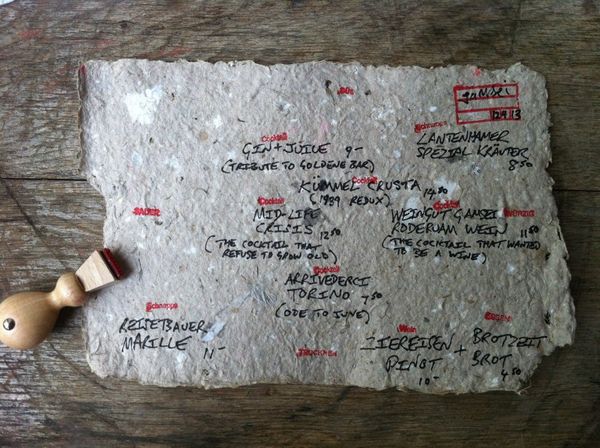 80s
gamsei
12 9 13
Cocktail
GIN + JUICE 9-
(TRIBUTE TO GOLDENE BAR)
Schnapps
LANTENHAMER
SPEZIAL KRÄUTER
8.50
Cocktail
KÜMMEL CRUSTA 14.50
(1989 REDUX)
SAUER
Cocktail
MID-LIFE
CRISIS 12.50
(THE COCKTAIL THAT
REFUSE TO GROW OLD)
Cocktail
WEINGUT GAMSEI
RODERUAM WEIN 11.50
(THE COCKTAIL THAT WANTED
TO BE A WINE)
Cocktail
ARRIVEDERCI
TORINO 7.50
(ODE TO JUNE)
Schnapps
REISETBAUER
MARILLE 11-
TROCKEN
Wein
ZIEREISEN
PINOT
10-
+
ESSEN
BROTZEIT
BROT
4.50